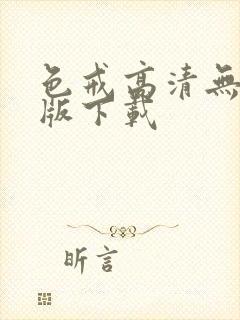 色戒高清無
版下載
昕言